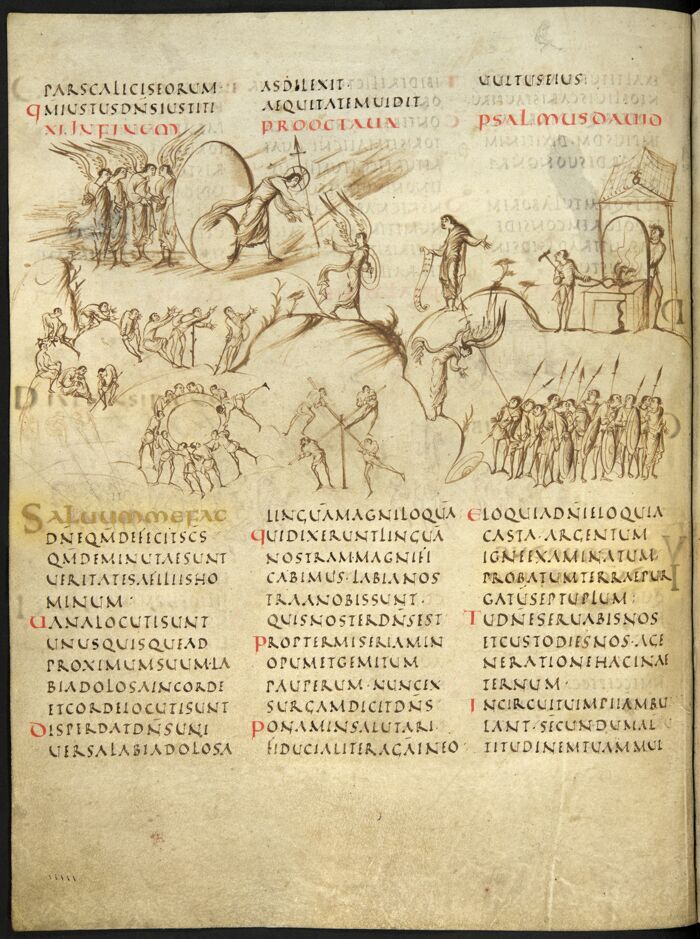 PARSCALICISEORUM·
QMIUSTUSDNSIUSTITI
ASDILEXIT·
AEQUITATEMUIDIT
UULTUSEIUS
XI·INFINEM
PROOCTAUA·
PSALMUSDAUID
SALUUMMEFAC
DNEQMDEFECITSCS
QMDEMINUTAESUNT
UERITATESAFILIISHO
MINUM·
UANALOCUTISUNT
UNUSQUISQUEAD
PROXIMUMSUUM·LA
BIADOLOSAINCORDE
ETCORDELOCUTISUNT
DISPERDATDNSUNI
UERSALABIADOLOSA
LINGUAMAGNILOQUA
QUIDIXERUNTLINGUA
NOSTRAM·MAGNIFI
CABIMUS·LABIANOS
TRAANOBISSUNT·
QUISNOSTERDNSEST
PROPTERMISERIAMIN
OPUMETGEMITUM
PAUPERUM·NUNCEX
SURGAMDICITDNS
PONAMINSALUTARI·
FIDUCIALITERAGAINEO·
ELOQUIADNIELOQUIA
CASTA·ARGENTUM
IGNEEXAMINATUM·
PROBATUMTERRAEPUR
GATUSEPTUPLUM:
TUDNESERUABISNOS
ETCUSTODIESNOS·AGE
NERATIONEHACINAE
TERNUM·
INCIRCUITUIMPIIAMBU
LANT·SECUNDUMAL
TITUDINEMTUAMMUL